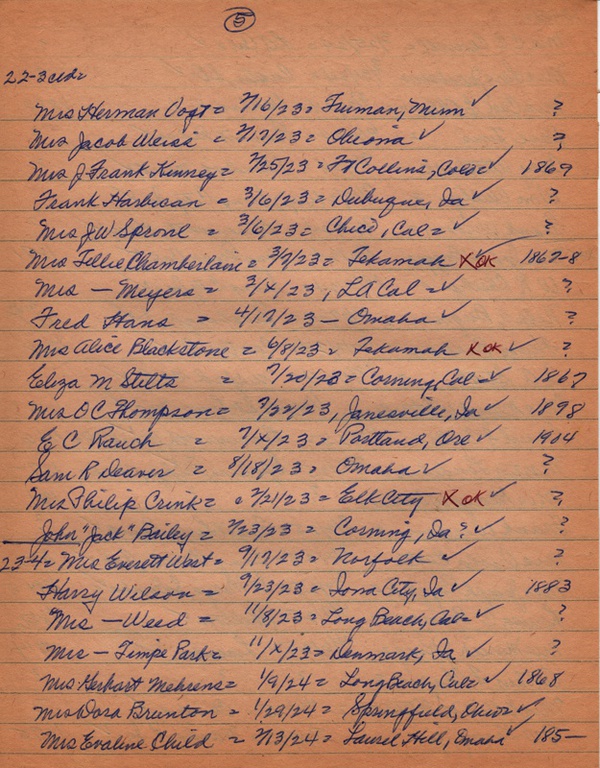 5
22-3 cdd=
Mrs Herman Vogt = 2/16/23 = Truman, Minn ✓ ?
Mrs Jacob Weiss = 2/17/23 = ✓ ?
Mrs J Frank Kinney = 2/25/23 = Ft Collins, Colo = ✓ 1869
Frank Harbican = 3/6/23 = Dubuque, Ia ✓ ?
Mrs J W Sprone = 3/6/23 = Chico, Cal = ✓ ?
Mrs Tillie Chamberlain = 3/7/23 = Tekamah X OK ✓ 1867-8
Mrs — Meyers = 3/x/23, LA Cal = ✓ ?
Fred Hans = 4/17/23 — Omaha ✓ ?
Mrs Alice Blackstone = 6/8/23 = Tekamah X OK ✓ ?
Eliza M Stilts = 7/20/23 = Corning, Cal = ✓ 1867
Mrs O C Thompson = 7/22/23, Janesville, Ia ✓ 1898
E C Rauch = 7/x/23 = Portland, Ore ✓ 1904
Sam R Deaver = 8/18/23 = Omaha ✓ ?
Mrs Philip Crink = 7/21/23 = Elk City X OK ✓ ?
John "Jack" Bailey = 7/23/23 = Corning, Ia? ✓ ?
23-4 = Mrs Everett West = 9/17/23 = Norfolk ✓ ?
Harry Wilson = 9/23/23 = Iowa City, Ia ✓ 1883
Mrs — Weed = 11/8/23 = Long Beach, Cal = ✓ ?
Mrs — Timpe Park = 11/x/23 = Denmark, Ia ✓ ?
Mrs Herbart Mehrens = 1/9/24 = Long Beach, Cal = ✓ 1868
Mrs Dora Brunton = 1/29/24 = Springfield, ✓
Mrs Evaline Child = 2/13/24 = Laurel Hill, Omaha ✓ 185—